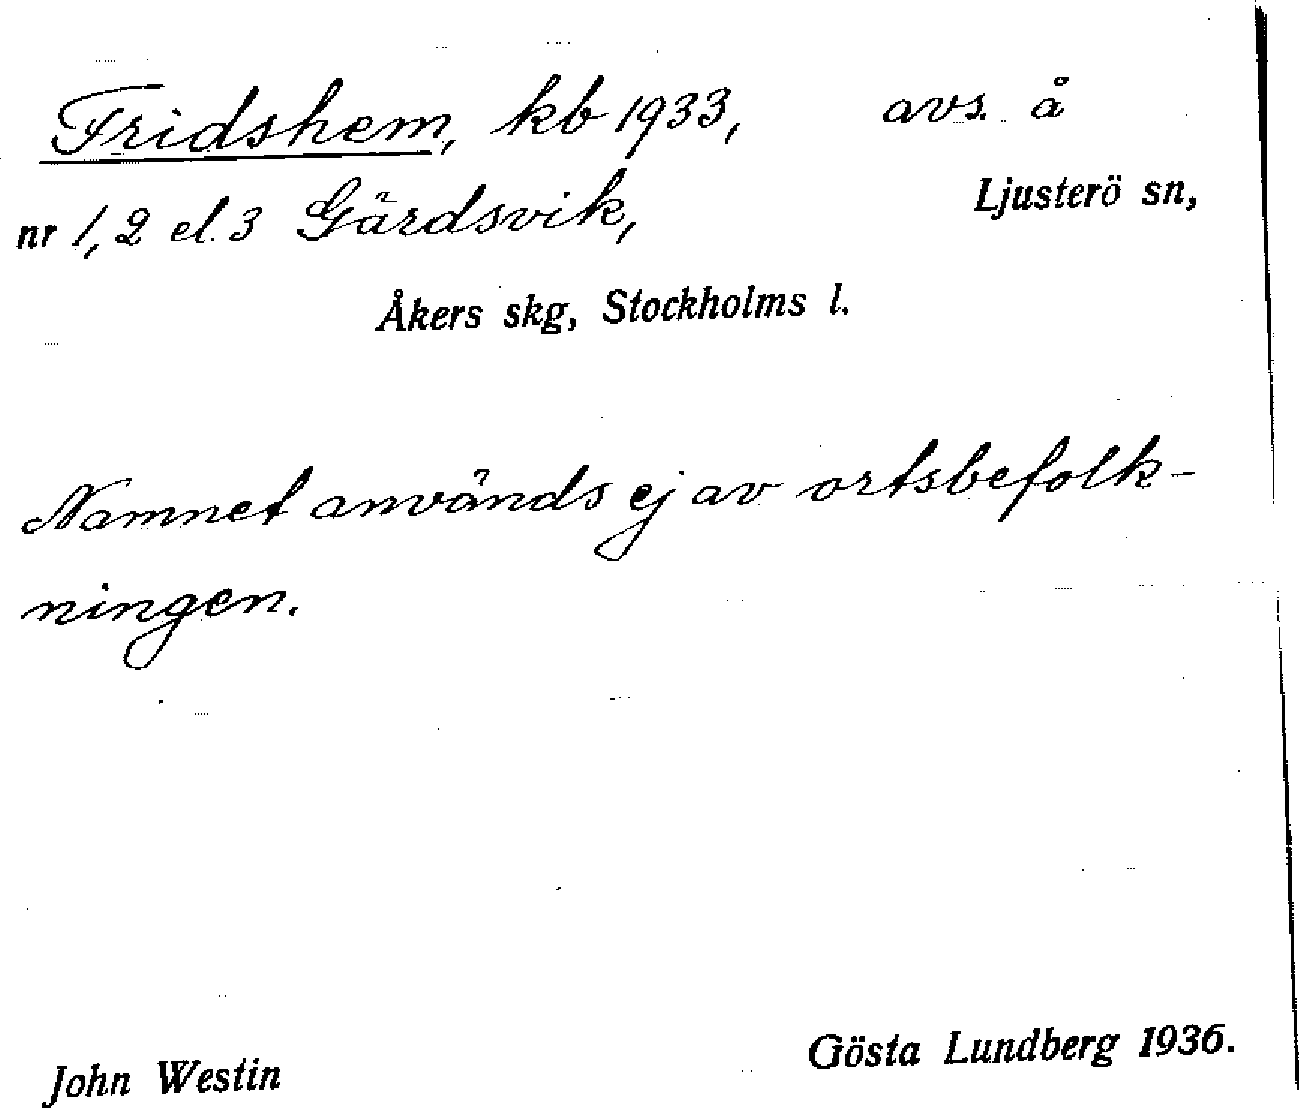 Fridshem, kb 1933, avs. å
nr 1, 2 el. 3 Gärdsvik, Ljusterö sn,
Åkers skg, Stockholms l.
Namnet används ej av ortsbefolk-
ningen.
John Westin Gösta Lundberg 1936.